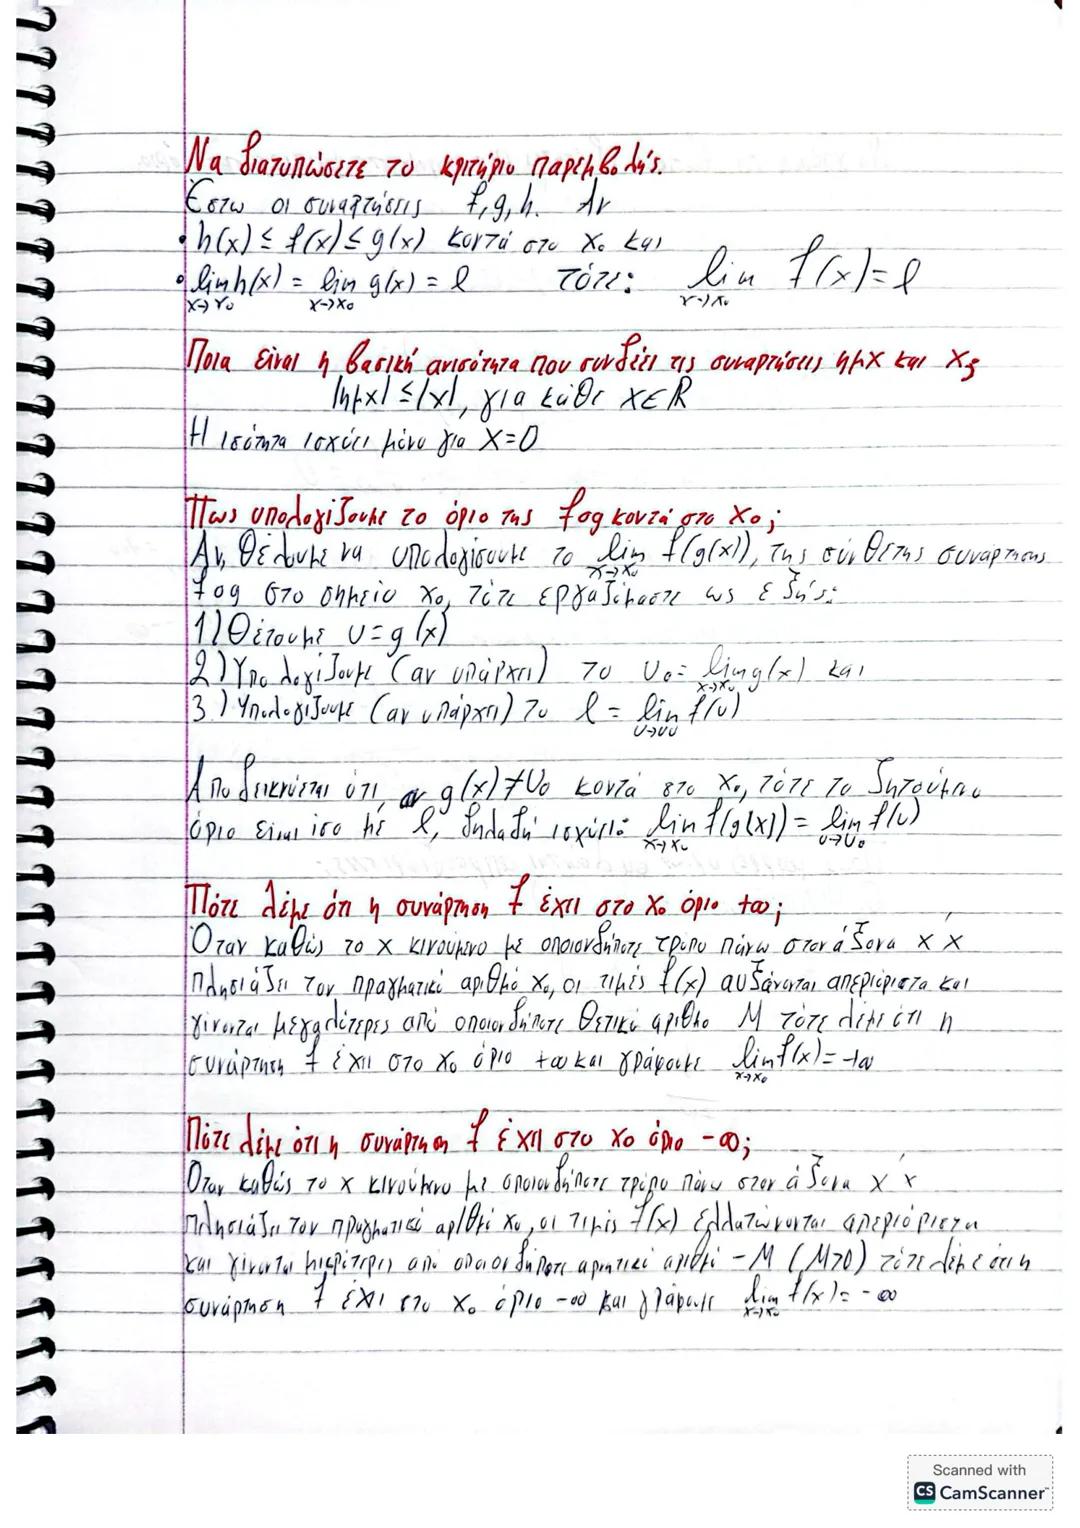 Να διατυπώσετε το κριτήριο παρεμβολής.
Έστω οι συναρτήσεις f, g, h. Αν
• h(x) ≤ f(x) ≤ g(x) κοντά στο x₀ και
• lim h(x) = lim g(x) = l τότε: lim f(x) = l
x→x₀ x→x₀ x→x₀
Ποια είναι η βασική ανισότητα που συνδέει τις συναρτήσεις ημx και x;
|ημx| ≤ |x|, για κάθε x∈ℝ
Η ισότητα ισχύει μόνο για x=0
Πως υπολογίζουμε το όριο της fog κοντά στο x₀;
Αν θέλουμε να υπολογίσουμε το lim f(g(x)), της σύνθετης συνάρτησης
x→x₀
fog στο σημείο x₀, τότε εργαζόμαστε ως εξής:
1) Θέτουμε u=g(x)
2) Υπολογίζουμε (αν υπάρχει) το u₀= lim g(x) και
x→x₀
3) Υπολογίζουμε (αν υπάρχει) το l = lim f(u)
u→u₀
Αποδεικνύεται ότι, αν g(x)≠u₀ κοντά στο x₀, τότε το ζητούμενο
όριο είναι ισο με l, δηλαδή ισχύει: lim f(g(x)) = lim f(u)
x→x₀ u→u₀
Πότε λέμε ότι η συνάρτηση f έχει στο x₀ όριο +∞;
Όταν καθώς το x κινούμενο με οποιονδήποτε τρόπο πάνω στον άξονα x΄x
πλησιάζει τον πραγματικό αριθμό x₀, οι τιμές f(x) αυξάνονται απεριόριστα και
γίνονται μεγαλύτερες από οποιονδήποτε θετικό αριθμο M τότε λέμε ότι η
συνάρτηση f έχει στο x₀ όριο +∞ και γράφουμε lim f(x)= +∞
x→x₀
Πότε λέμε ότι η συνάρτηση f έχει στο x₀ όριο -∞;
Όταν καθώς το x κινούμενο με οποιονδήποτε τρόπο πάνω στον άξονα x΄x
πλησιάζει τον πραγματικό αριθμό x₀, οι τιμές f(x) ελλατώνονται απεριόριστα
και γίνονται μικρότερες από οποιονδήποτε αρνητικό αριθμό -M (M>0) τότε λέμε ότι η
συνάρτηση f έχει στο x₀ όριο -∞ και γράφουμε lim f(x)= -∞
x→x₀
Scanned with
CS CamScanner™